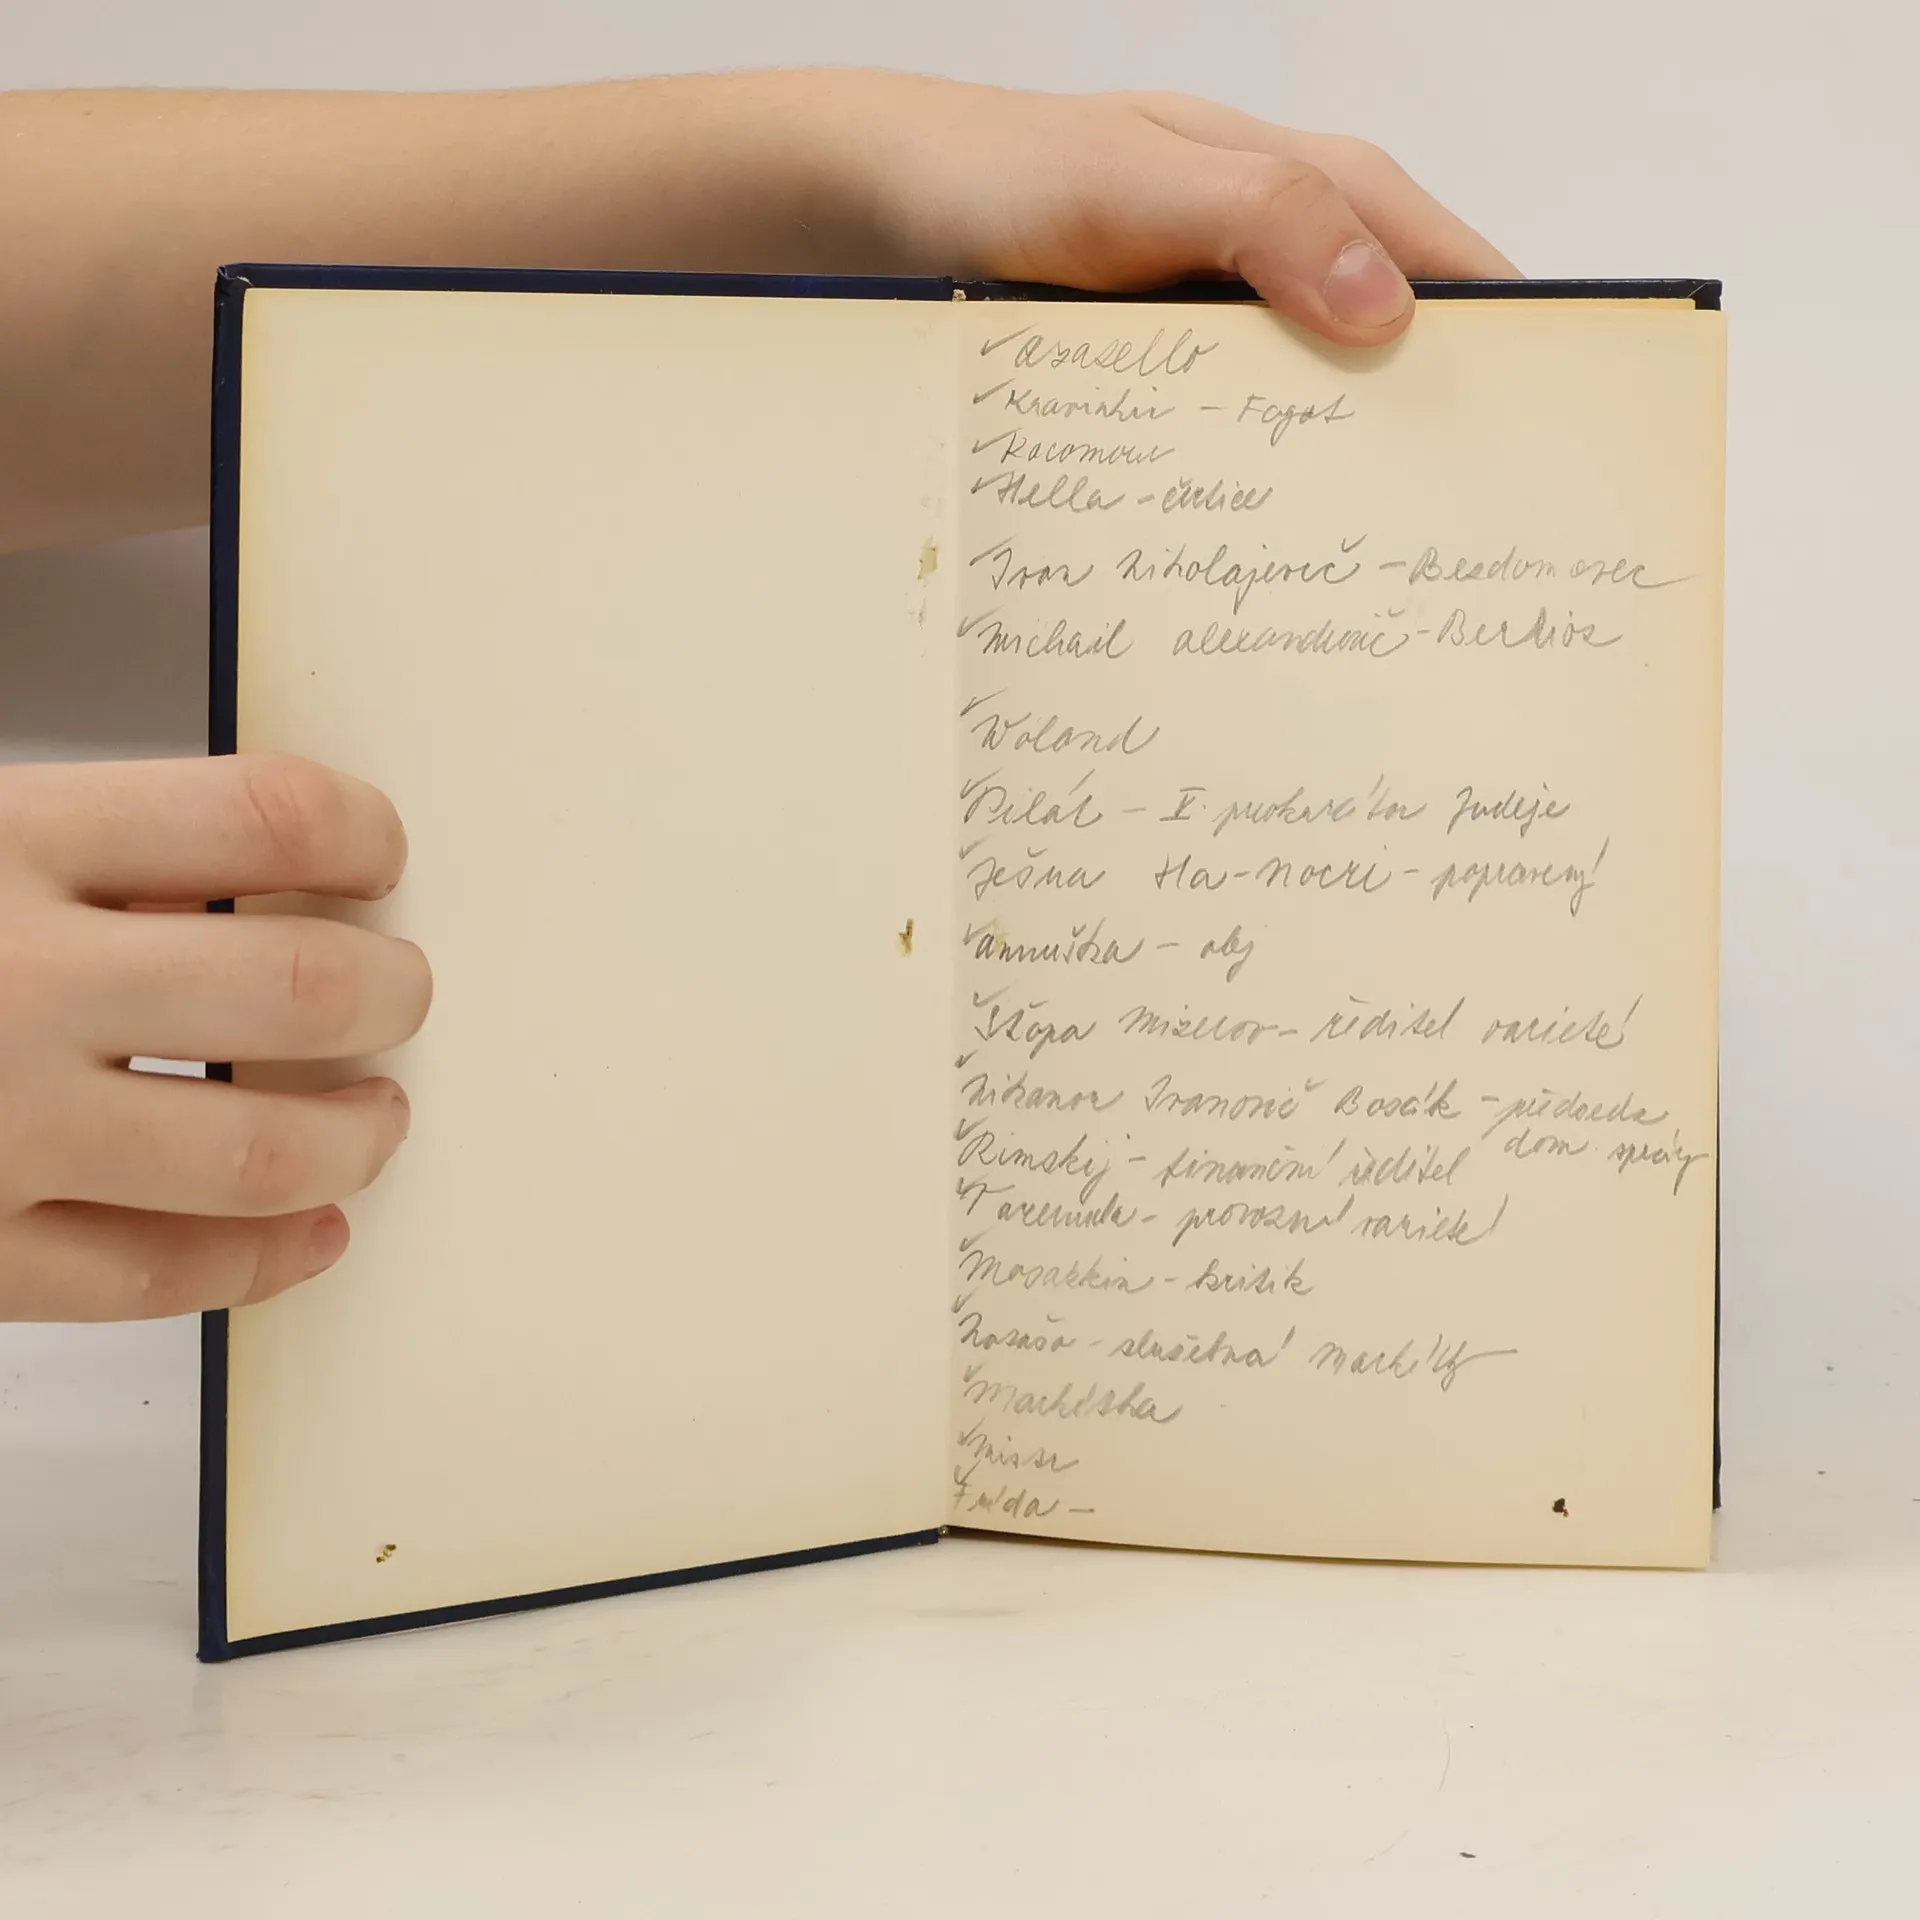 ✓ Azasello
✓ Kravinkin – Fagot
✓ Kocomour
✓ Hella – čertice
✓ Ivan Nikolajevič – Bezdomovec
✓ Michail Alexandrovič – Berlioz
✓ Woland
✓ Pilát – V. prokurátor Judeje
✓ Ješua Ha-Nocri – popravený
✓ Annuška – olej
✓ Šťopa – ředitel varieté
✓ Nikanor Ivanovič Bosák – předseda
dom. správy
✓ Rimskij – finanční ředitel
✓ Varenucha – provozní varieté
✓ – kritik
✓ Nataša – služebná Markétky
✓ Markétka
✓ Mistr
✓ Frída –